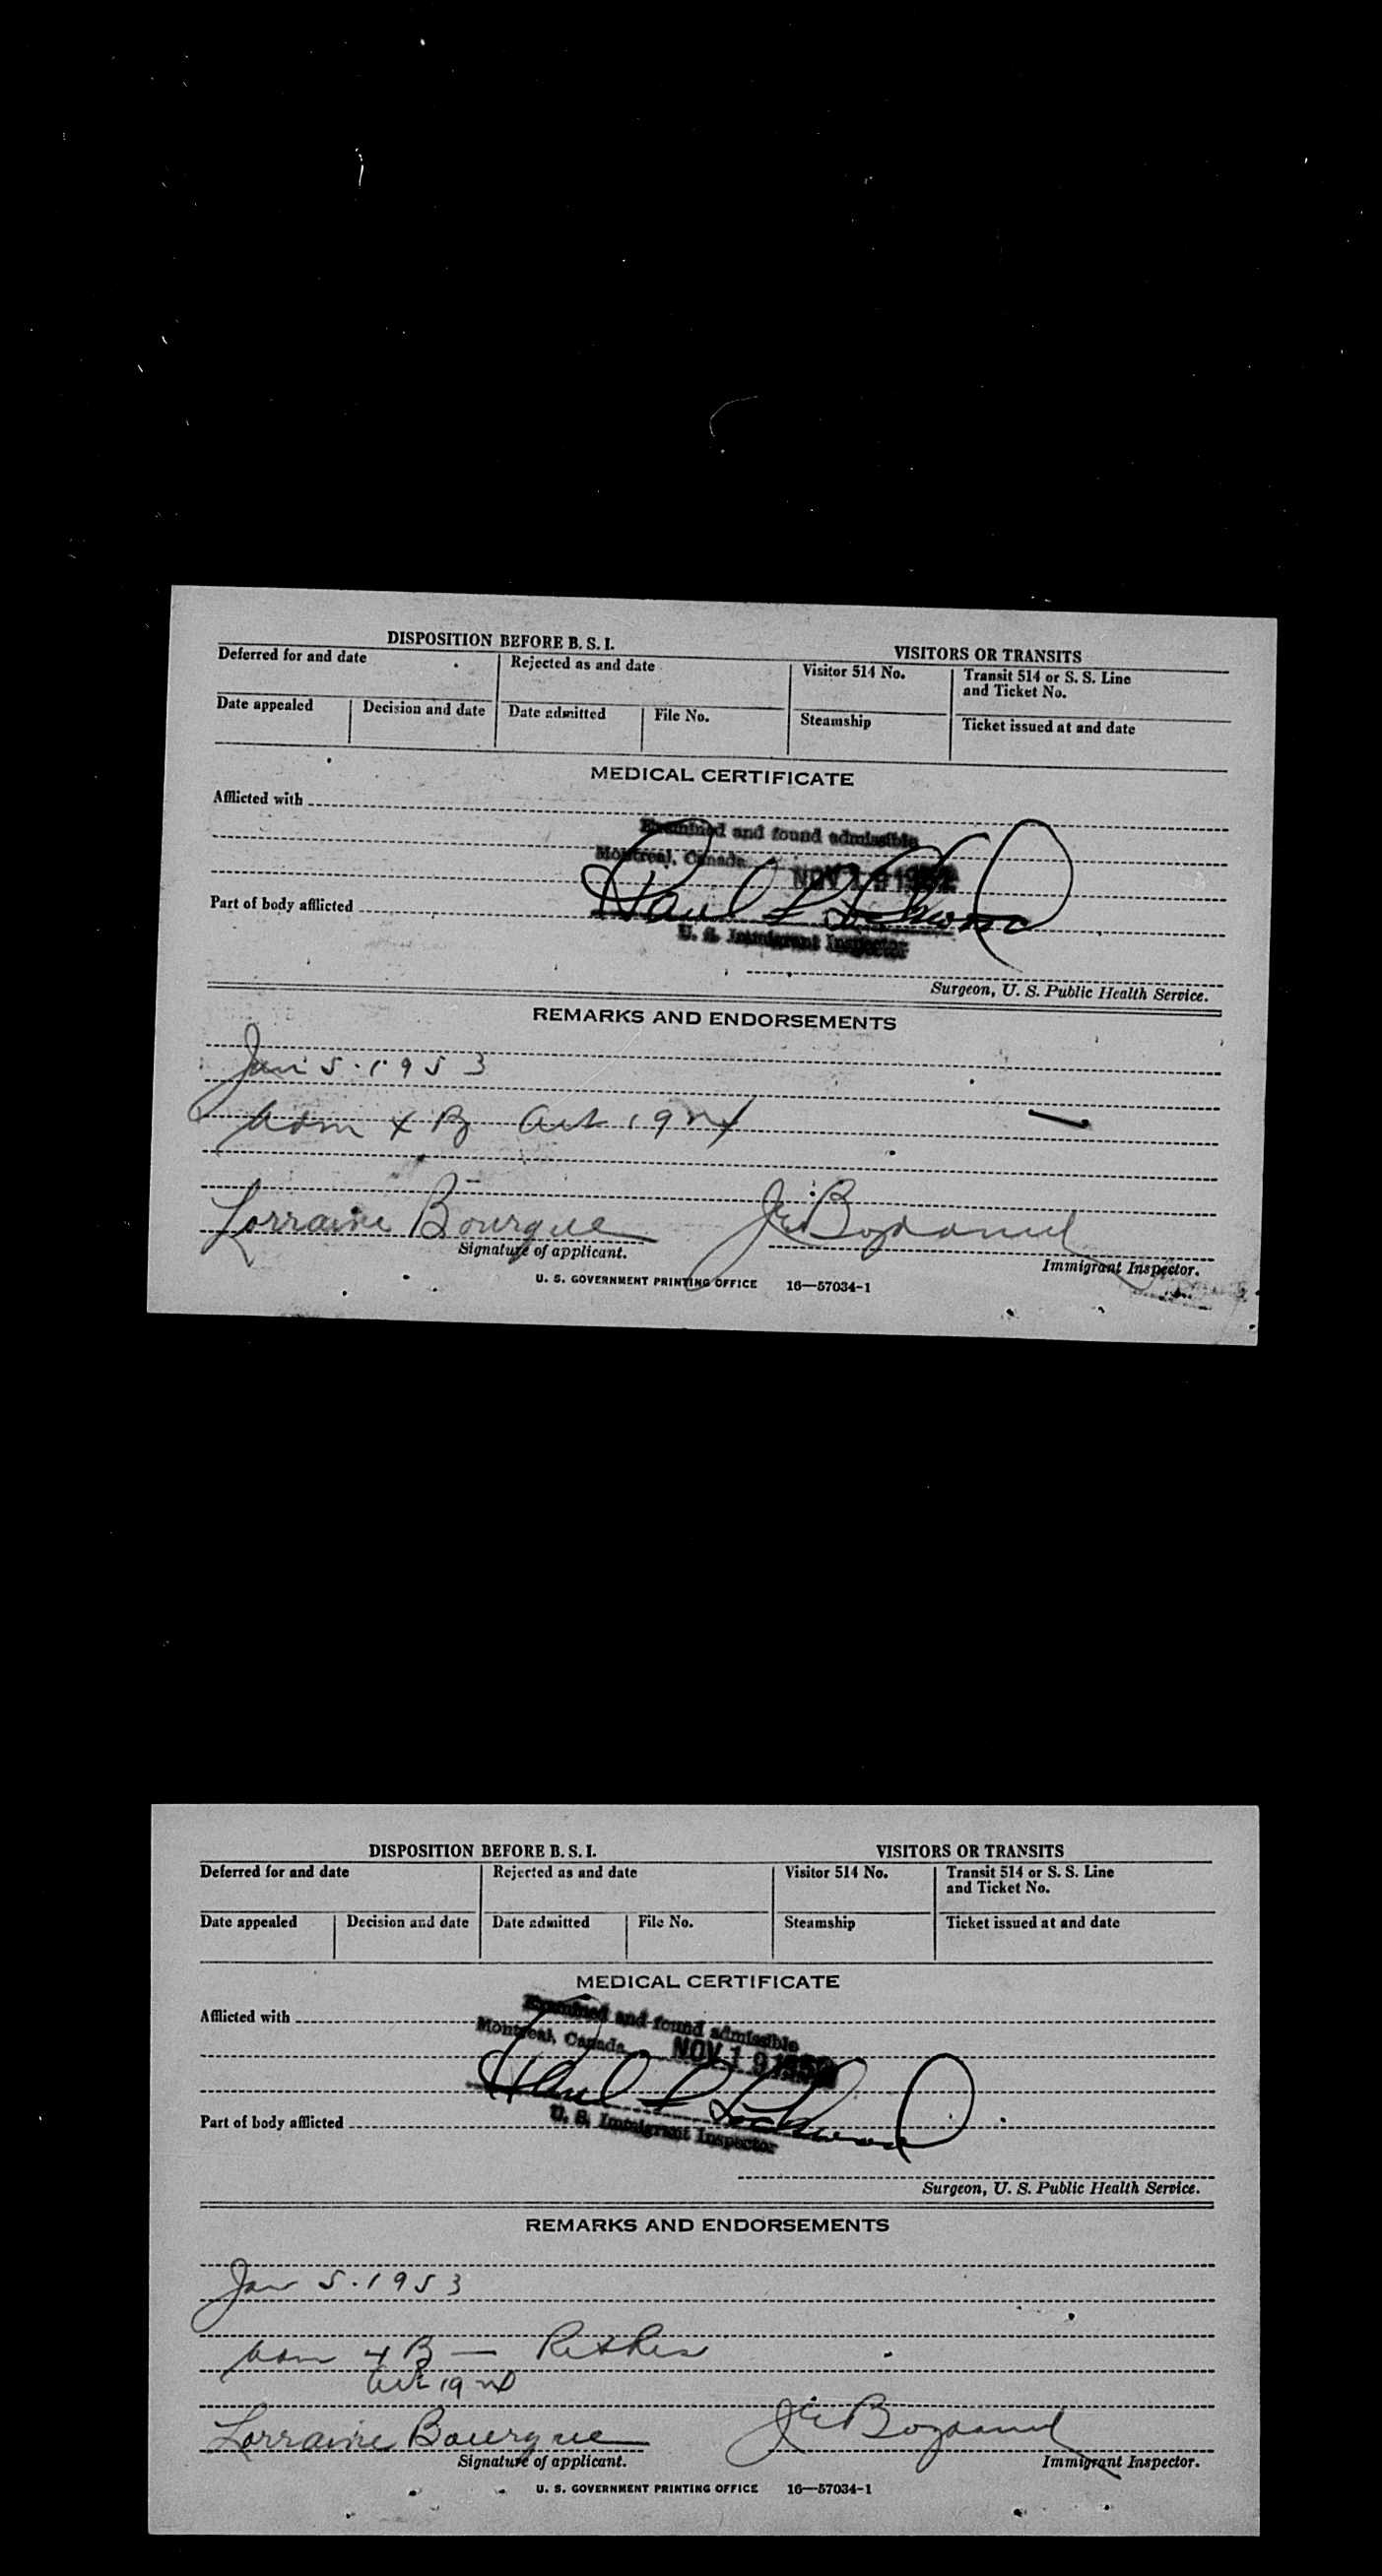 DISPOSITION BEFORE B. S. I.
VISITORS OR TRANSITS
Deferred for and date
Rejected as and date
Visitor 514 No.
Transit 514 or S. S. Line
and Ticket No.
Date appealed
Decision and date
Date admitted
File No.
Steamship
Ticket issued at and date
MEDICAL CERTIFICATE
Afflicted with
Examined and found admissible
Montreal, Canada
NOV 19 1952
Part of body afflicted
Paul L Lockwood
U. S. Immigrant Inspector
Surgeon, U. S. Public Health Service.
REMARKS AND ENDORSEMENTS
Jan 5·1953
Lorraine Bourque
Signature of applicant.
Immigrant Inspector.
U. S. GOVERNMENT PRINTING OFFICE 16—57034-1
DISPOSITION BEFORE B. S. I.
VISITORS OR TRANSITS
Deferred for and date
Rejected as and date
Visitor 514 No.
Transit 514 or S. S. Line
and Ticket No.
Date appealed
Decision and date
Date admitted
File No.
Steamship
Ticket issued at and date
MEDICAL CERTIFICATE
Afflicted with
Examined and found admissible
Montreal, Canada
NOV 19 1952
Part of body afflicted
Paul L Lockwood
U. S. Immigrant Inspector
Surgeon, U. S. Public Health Service.
REMARKS AND ENDORSEMENTS
Jan 5·1953
Lorraine Bourque
Signature of applicant.
Immigrant Inspector.
U. S. GOVERNMENT PRINTING OFFICE 16—57034-1